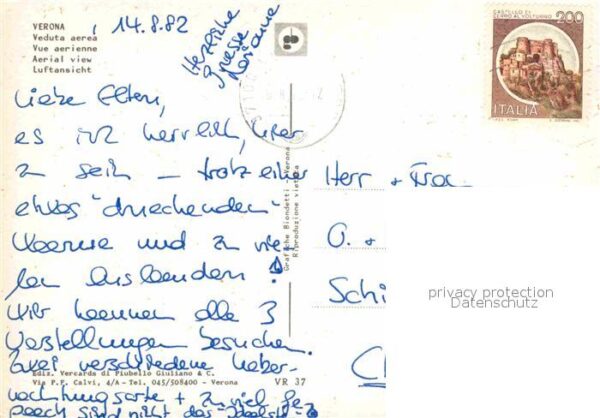 VERONA
Veduta aerea
Vue aerienne
Aerial view
Luftansicht
14.8.82
Herzliche
Grüsse
Marianne
CASTELLO DI
CERRO AL VOLTURNO
200
ITALIA
Liebe Eltern,
es ist herrlich, hier
zu sein - trotz einer
etwas "drueckenden"
Waerme und zu vie-
len Auslaendern!
Wir koennen alle 3
Vorstellungen besuchen.
Zwei verschiedene Ueber-
nachtungsorte + zuviel Ge-
paeck sind nicht das
Herr + Frau
O. +
Schi
CH
Grafiche Biondetti - Verona
Riproduzione vietata
privacy protection
Datenschutz
Ediz. Vercards di Piubello Giuliano & C.
Via P.F. Calvi, 4/A - Tel. 045/508400 - Verona
VR 37